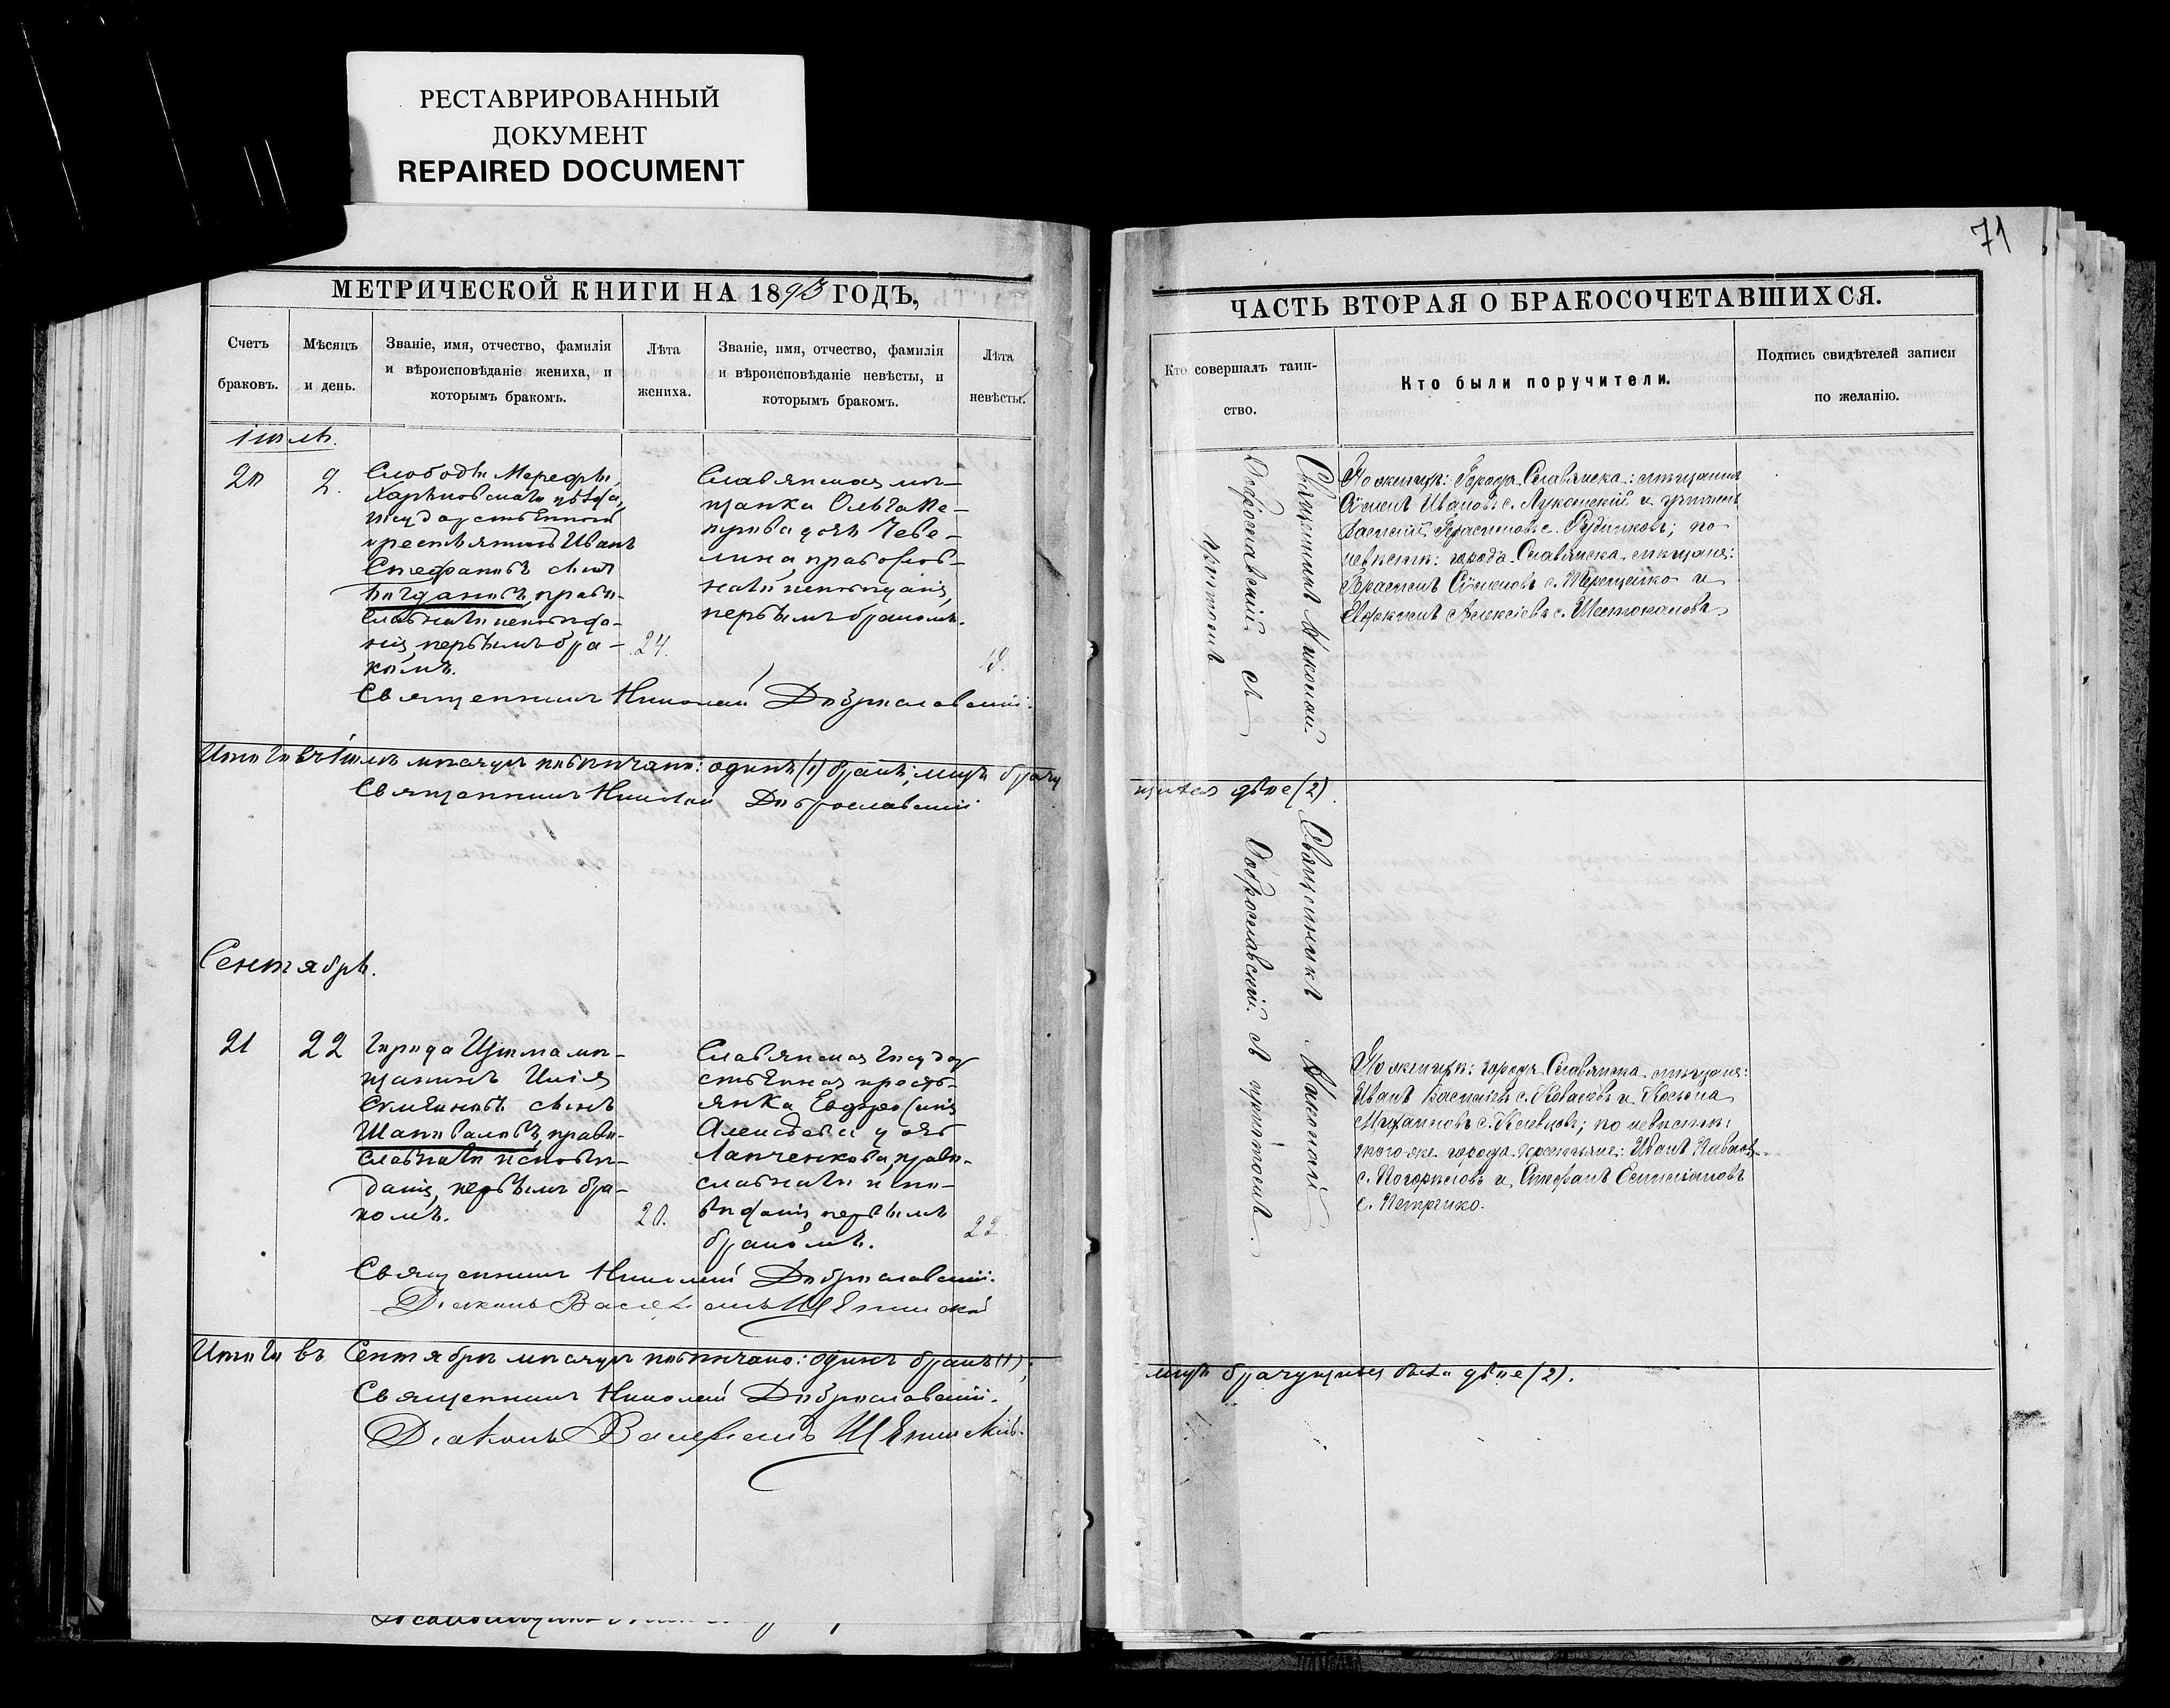 РЕСТАВРИРОВАННЫЙ
ДОКУМЕНТ
REPAIRED DOCUMENT
МЕТРИЧЕСКОЙ КНИГИ НА 1893 ГОДЪ,
Счетъ
браковъ.
Мѣсяцъ
и день.
Званіе, имя, отчество, фамилія
и вѣроисповѣданіе жениха, и
которымъ бракомъ.
Лѣта
жениха.
Званіе, имя, отчество, фамилія
и вѣроисповѣданіе невѣсты, и
которымъ бракомъ.
Лѣта
невѣсты.
Іюль.
20
2.
Слободы Мерефы,
Харьковскаго уѣзда,
государственный
крестьянинъ Иванъ
Стефановъ сынъ
Богдановъ, право-
славнаго исповѣда-
нія, первымъ бра-
комъ.
24.
Славянская мѣ-
щанка Ольга Пе-
трова дочь
православ-
наго
первымъ бракомъ.
Священникъ Николай Доброславскій.
Итого въ Іюлѣ мѣсяцѣ повѣнчано: одинъ (1) бракъ; лицъ брачу
Священникъ Николай Доброславскій
Сентябрь.
21
22
Города Изюма мѣ-
щанинъ Илія
сынъ
Шаповаловъ, право-
славнаго исповѣ-
данія, первымъ бра-
комъ.
20.
Славянская государ
ственная кресть-
янка Евфросинія
Алексѣева дочь
Лапченкова, право-
славнаго испо-
вѣданія первымъ
бракомъ.
22.
Священникъ Николай Доброславскій.
Діаконъ Василій
Итого въ Сентябрѣ мѣсяцѣ повѣнчано: одинъ бракъ (1);
Священникъ Николай Доброславскій.
Діаконъ Василій
71
ЧАСТЬ ВТОРАЯ О БРАКОСОЧЕТАВШИХСЯ.
Кто совершалъ таин-
ство.
Кто были поручители.
Подпись свидѣтелей записи
по желанію.
Священникъ Николай
Доброславскій съ
причтомъ
По женихѣ: Города Славянска: мѣщанинъ
Ивановъ с. и
Василій с. ; по
невѣстѣ: города Славянска мѣщане:
Герасимъ с. Терещенко и
Алексѣевъ с. Шестопаловъ
щихся двое (2).
Священникъ Николай
Доброславскій съ причтомъ.
По женихѣ: города Славянска мѣщане:
Иванъ Васильевъ с. Ковалевъ и Косьма
Михаиловъ с. ; по невѣстѣ:
того-же города крестьяне: Иванъ Павловъ
с. Погорѣловъ и Стефанъ
с. Петренко.
лицъ брачущихся было двое (2).